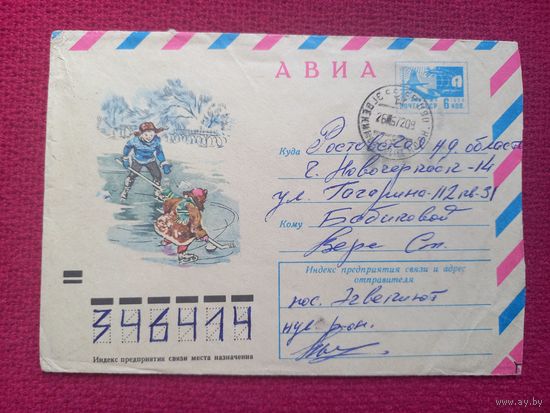 АВИА
ПОЧТА СССР 6 КОП.
Куда Ростовская обл
г. Новочеркасск-14
ул. Гагарина-112 кв. 31
Кому
Вере Ст.
Индекс предприятия связи и адрес отправителя
пос. Эгвекинот
346414
Индекс предприятия связи места назначения
www.ay.by